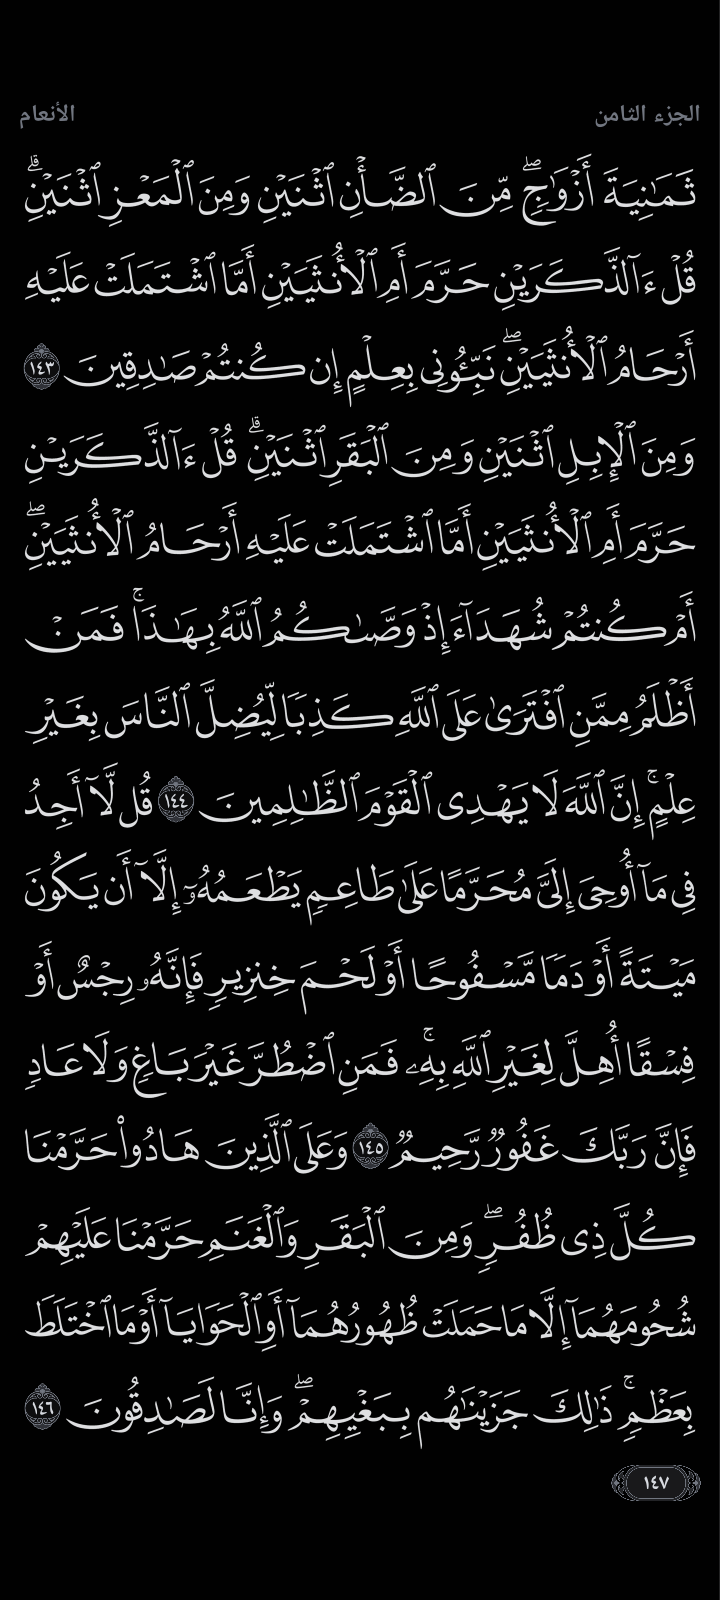 الجزء الثامن
الأنعام
ثَمَٰنِيَةَ أَزْوَٰجٍۖ مِّنَ ٱلضَّأْنِ ٱثْنَيْنِ وَمِنَ ٱلْمَعْزِ ٱثْنَيْنِۗ
قُلْ ءَآلذَّكَرَيْنِ حَرَّمَ أَمِ ٱلْأُنثَيَيْنِ أَمَّا ٱشْتَمَلَتْ عَلَيْهِ
أَرْحَامُ ٱلْأُنثَيَيْنِۖ نَبِّـُٔونِى بِعِلْمٍ إِن كُنتُمْ صَٰدِقِينَ ١٤٣
وَمِنَ ٱلْإِبِلِ ٱثْنَيْنِ وَمِنَ ٱلْبَقَرِ ٱثْنَيْنِۗ قُلْ ءَآلذَّكَرَيْنِ
حَرَّمَ أَمِ ٱلْأُنثَيَيْنِ أَمَّا ٱشْتَمَلَتْ عَلَيْهِ أَرْحَامُ ٱلْأُنثَيَيْنِۖ
أَمْ كُنتُمْ شُهَدَآءَ إِذْ وَصَّىٰكُمُ ٱللَّهُ بِهَٰذَاۚ فَمَنْ
أَظْلَمُ مِمَّنِ ٱفْتَرَىٰ عَلَى ٱللَّهِ كَذِبًا لِّيُضِلَّ ٱلنَّاسَ بِغَيْرِ
عِلْمٍۚ إِنَّ ٱللَّهَ لَا يَهْدِى ٱلْقَوْمَ ٱلظَّٰلِمِينَ ١٤٤ قُل لَّآ أَجِدُ
فِى مَآ أُوحِىَ إِلَىَّ مُحَرَّمًا عَلَىٰ طَاعِمٍ يَطْعَمُهُۥٓ إِلَّآ أَن يَكُونَ
مَيْتَةً أَوْ دَمًا مَّسْفُوحًا أَوْ لَحْمَ خِنزِيرٍ فَإِنَّهُۥ رِجْسٌ أَوْ
فِسْقًا أُهِلَّ لِغَيْرِ ٱللَّهِ بِهِۦۚ فَمَنِ ٱضْطُرَّ غَيْرَ بَاغٍ وَلَا عَادٍ
فَإِنَّ رَبَّكَ غَفُورٌ رَّحِيمٌ ١٤٥ وَعَلَى ٱلَّذِينَ هَادُوا۟ حَرَّمْنَا
كُلَّ ذِى ظُفُرٍۖ وَمِنَ ٱلْبَقَرِ وَٱلْغَنَمِ حَرَّمْنَا عَلَيْهِمْ
شُحُومَهُمَآ إِلَّا مَا حَمَلَتْ ظُهُورُهُمَآ أَوِ ٱلْحَوَايَآ أَوْ مَا ٱخْتَلَطَ
بِعَظْمٍۚ ذَٰلِكَ جَزَيْنَٰهُم بِبَغْيِهِمْۖ وَإِنَّا لَصَٰدِقُونَ ١٤٦
١٤٧